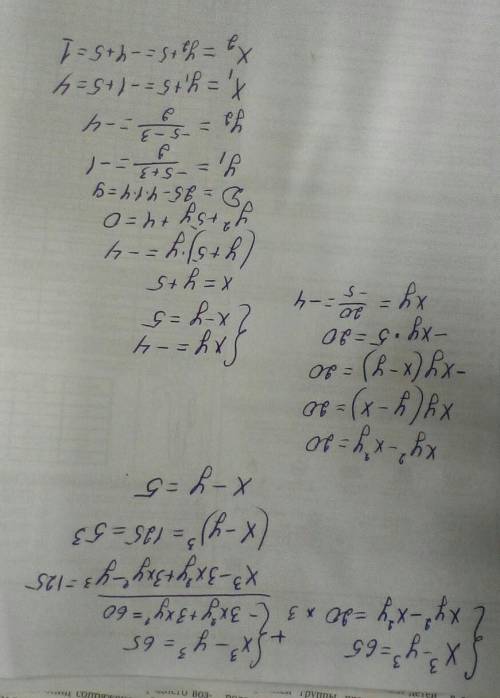 {x³-y³=65
xy²-x²y=20 ×3
+
{x³-y³=65
-3x²y+3xy²=60
x³-3x²y+3xy²-y³=125
(x-y)³=125=5³
x-y=5
xy²-x²y=20
xy(y-x)=20
-xy(x-y)=20
-xy·5=20
xy=20/-5=-4
{xy=-4
x-y=5
x=y+5
(y+5)·y=-4
y²+5y+4=0
D=25-4·1·4=9
y₁=-5+3/2=-1
y₂=-5-3/2=-4
x₁=y₁+5=-1+5=4
x₂=y₂+5=-4+5=1